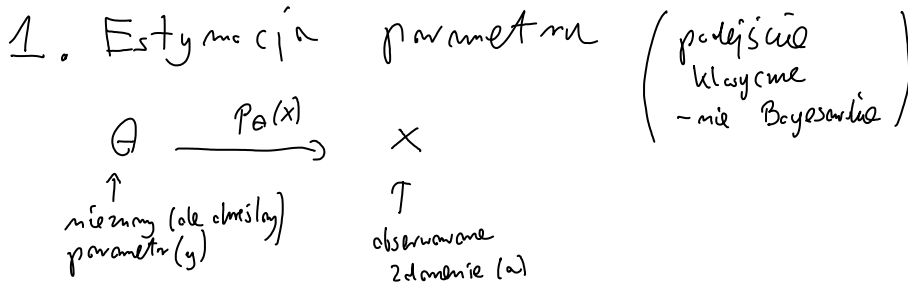 1. Estymacja parametru
(podejście
klasyczne
- nie Bayesowskie)
θ
p_θ(x)
x
↑
↑
nieznany (ale określony)
parametr(y)
obserwowane
zdarzenie (a)